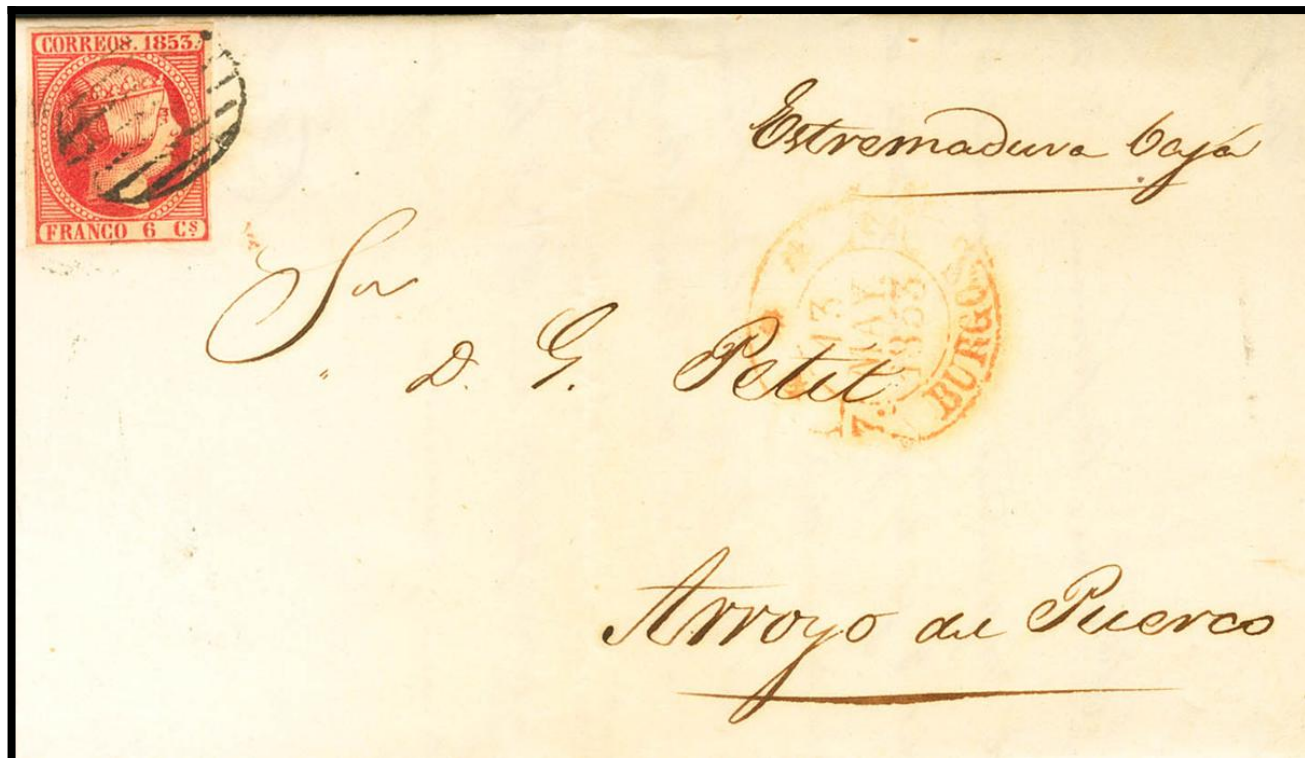 CORREOS. 1853.
FRANCO 6 Cs
Estremadura baja
Sor
D. G. Petit
13
MAY.
1853
BURGOS
Arroyo del Puerco